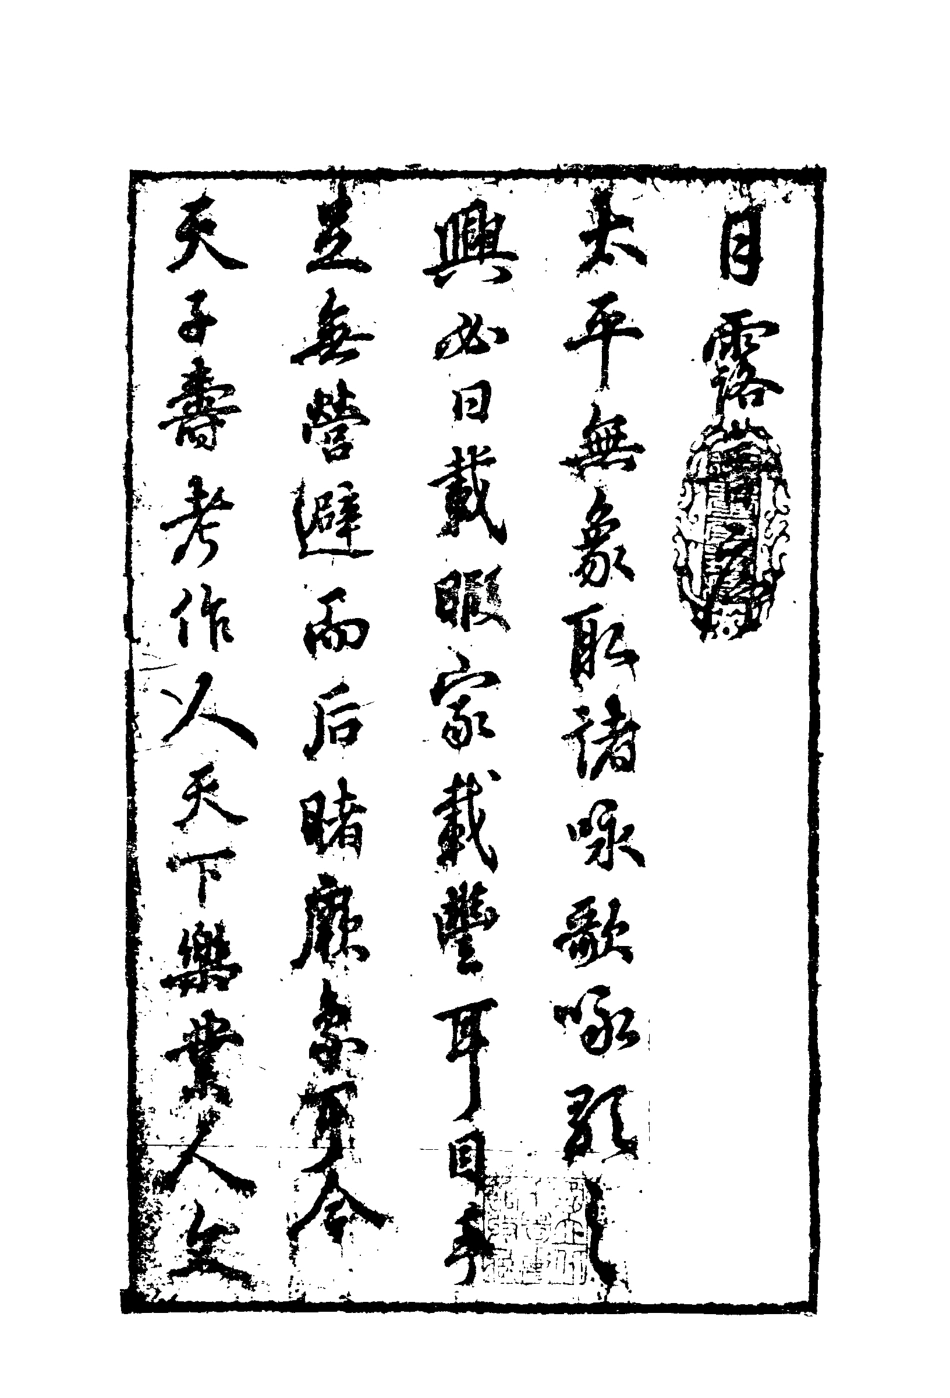 月露音序
太平無象取諸咏歌咏歌之
興必日載暇家載豐耳目手
足無營避而后睹厥象可令
天子壽考作人天下樂業人文